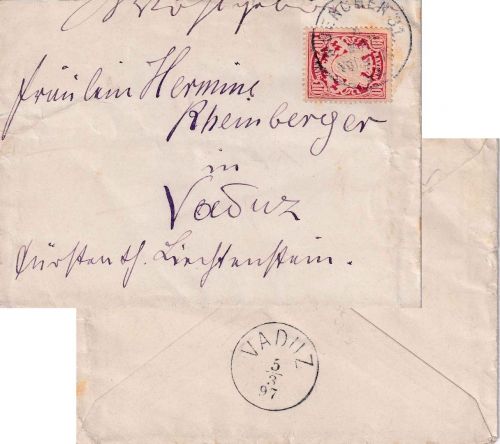 Fräulein Hermine
Rheinberger
in
Vaduz
Fürstenth. Liechtenstein.
MÜNCHEN 31
10
10
VADUZ
5
3
97